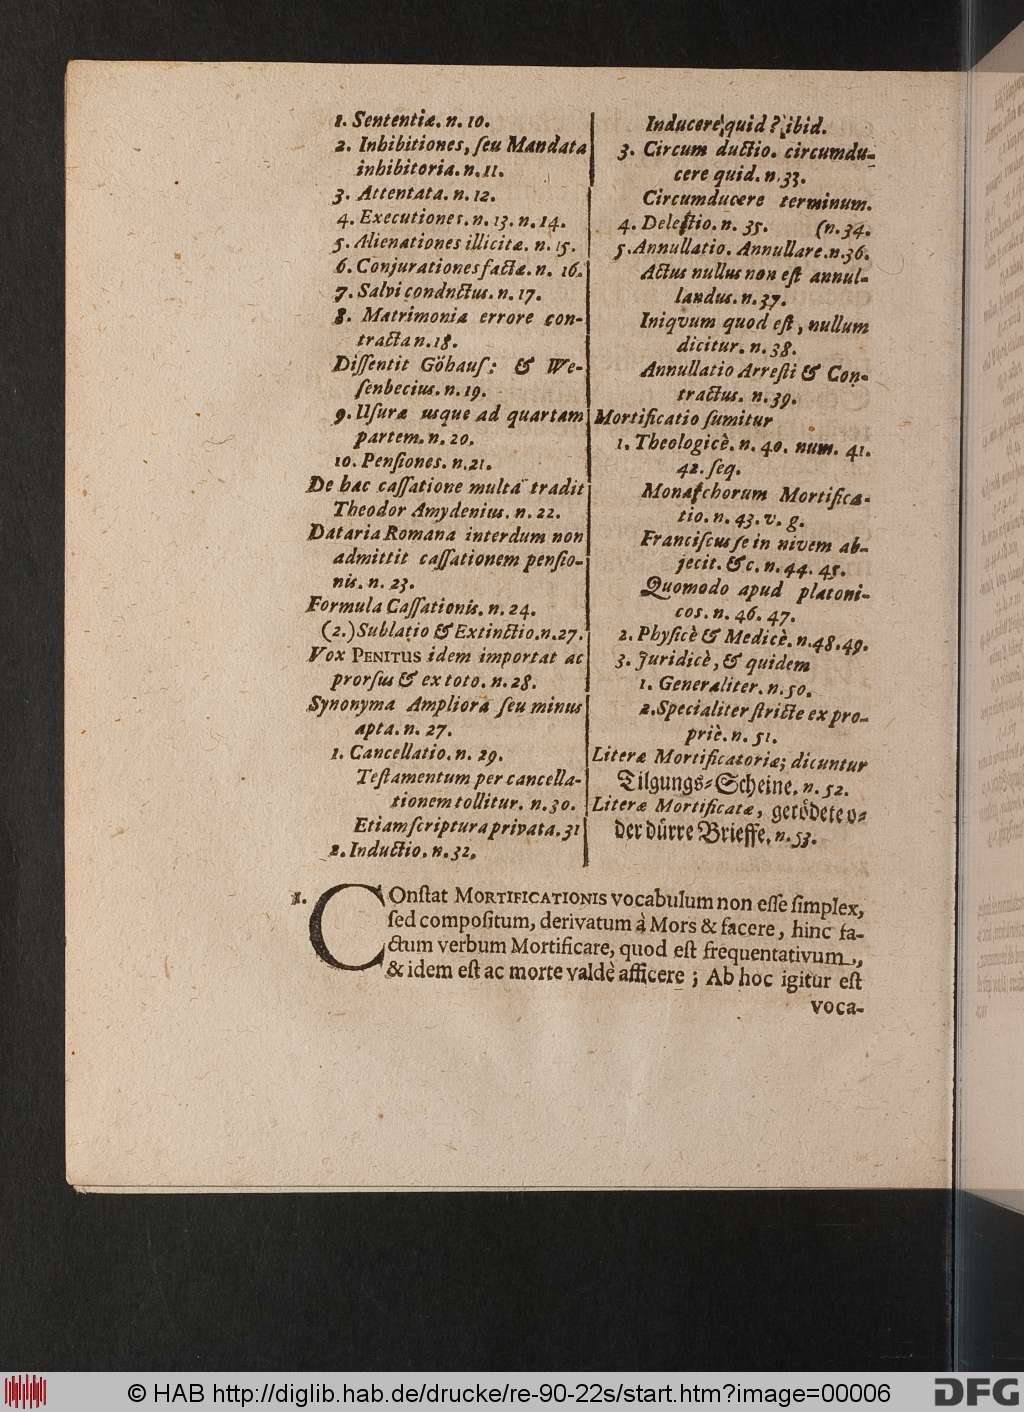 1. Sententiæ. n. 10.
2. Inhibitiones, ſeu Mandata
inhibitoria. n. 11.
3. Attentata. n. 12.
4. Executiones. n. 13. n. 14.
5. Alienationes illicitæ. n. 15.
6. Conjurationes factæ. n. 16.
7. Salvi condnctus. n. 17.
8. Matrimonia errore con-
tracta n. 18.
Diſſentit Göhauſ: & We-
ſenbecius. n. 19.
9. Uſuræ usque ad quartam
partem. n. 20.
10. Penſiones. n. 21.
De hac caſſatione multa tradit
Theodor Amydenius. n. 22.
Dataria Romana interdum non
admittit caſſationem penſio-
nis. n. 23.
Formula Caſſationis. n. 24.
(2.) Sublatio & Extinctio. n. 27.
Vox PENITUS idem importat ac
prorſus & ex toto. n. 28.
Synonyma Ampliora ſeu minus
apta. n. 27.
1. Cancellatio. n. 29.
Teſtamentum per cancella-
tionem tollitur. n. 30.
Etiam ſcriptura privata. 31
2. Inductio. n. 32.
Inducere quid? ibid.
3. Circum ductio. circumdu-
cere quid. n. 33.
Circumducere terminum.
4. Deleſtio. n. 35. (n. 34.
5. Annullatio. Annullare. n. 36.
Actus nullus non eſt annul-
landus. n. 37.
Iniqvum quod eſt, nullum
dicitur. n. 38.
Annullatio Arreſti & Con-
tractus. n. 39.
Mortificatio ſumitur
1. Theologicè. n. 40. num. 41.
42. ſeq.
Monaſchorum Mortifica-
tio. n. 43. v. g.
Franciſcus ſe in nivem ab-
jecit. &c. n. 44. 45.
Quomodo apud platoni-
cos. n. 46. 47.
2. Phyſicè & Medicè. n. 48. 49.
3. Juridicè, & quidem
1. Generaliter. n. 50.
2. Specialiter ſtricte ex pro-
priè. n. 51.
Literæ Mortificatoriæ; dicuntur
Tilgungs-Scheine. n. 52.
Literæ Mortificatæ, getödete o-
der dürre Brieffe. n. 53.
1. COnſtat MORTIFICATIONIS vocabulum non eſſe ſimplex,
ſed compoſitum, derivatum à Mors & facere, hinc fa-
ctum verbum Mortificare, quod eſt frequentativum,
& idem eſt ac morte valdè afficere; Ab hoc igitur eſt
voca-
© HAB http://diglib.hab.de/drucke/re-90-22s/start.htm?image=00006
DFG